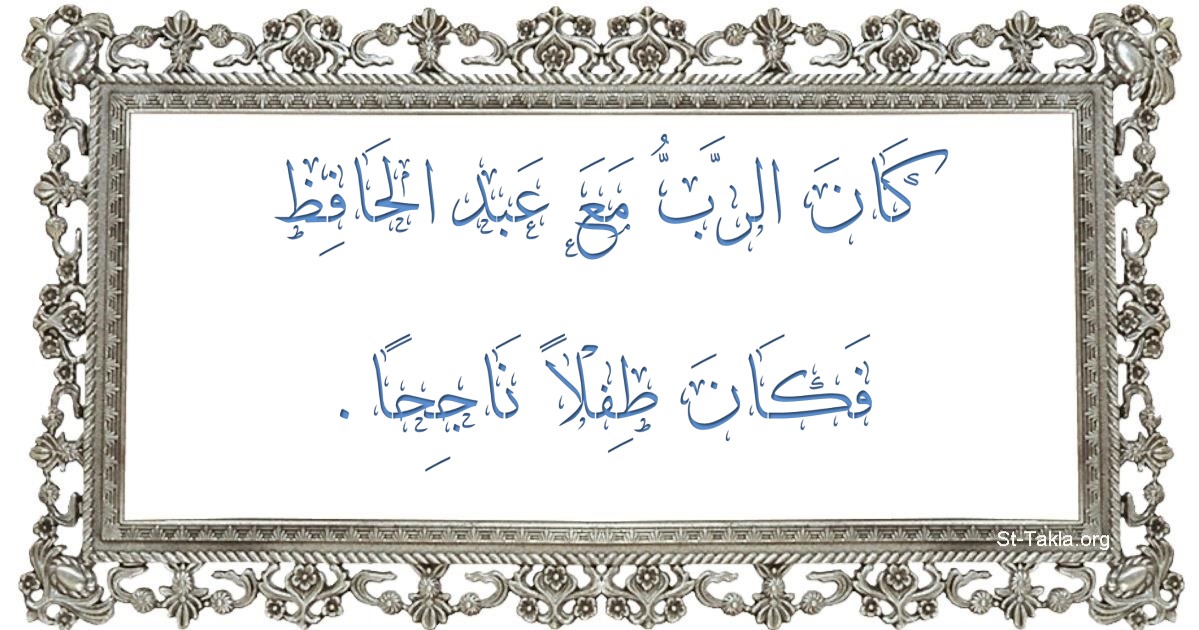 كَانَ الرَّبُّ مَعَ عَبْد الْحَافِظْ
فَكَانَ طِفْلاً نَاجِحًا .
St-Takla.org